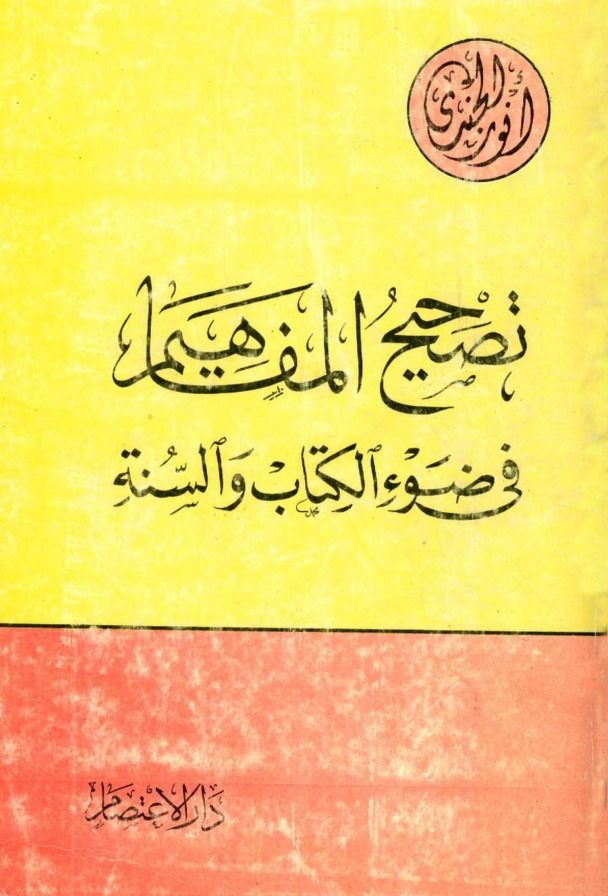 أنور الجندي
تصحيح المفاهيم
في ضوء الكتاب والسنة
دار الاعتصام